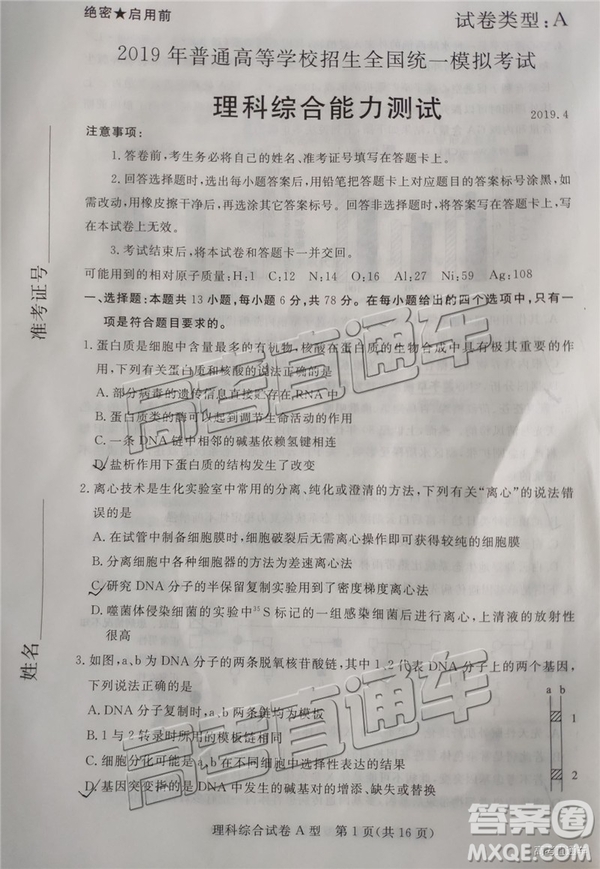 绝密★启用前
试卷类型:A
2019年普通高等学校招生全国统一模拟考试
理科综合能力测试
2019.4
注意事项:
1.答卷前,考生务必将自己的姓名、准考证号填写在答题卡上。
2.回答选择题时,选出每小题答案后,用铅笔把答题卡上对应题目的答案标号涂黑,如
需改动,用橡皮擦干净后,再选涂其它答案标号。回答非选择题时,将答案写在答题卡上,写
在本试卷上无效。
3.考试结束后,将本试卷和答题卡一并交回。
可能用到的相对原子质量:H:1 C:12 N:14 O:16 Al:27 Ni:59 Ag:108
一、选择题:本题共13小题,每小题6分,共78分。在每小题给出的四个选项中,只有一
项是符合题目要求的。
1.蛋白质是细胞中含量最多的有机物,核酸在蛋白质的生物合成中具有极其重要的作
用,下列有关蛋白质和核酸的说法正确的是
A.部分病毒的遗传信息直接贮存在RNA中
B.蛋白质类的酶可以起到调节生命活动的作用
C.一条DNA链中相邻的碱基依赖氢键相连
D.盐析作用下蛋白质的结构发生了改变
2.离心技术是生化实验室中常用的分离、纯化或澄清的方法,下列有关“离心”的说法错
误的是
A.在试管中制备细胞膜时,细胞破裂后无需离心即可获得较纯的细胞膜
B.分离细胞中各种细胞器的方法为差速离心法
C.研究DNA分子的半保留复制实验可用到密度梯度离心法
D.噬菌体侵染细菌的实验中³⁵S标记的一组感染细菌后进行离心,上清液的放射性
很高
3.如图,a、b为DNA分子的两条脱氧核苷酸链,其中1、2代表DNA上的两个基因,
下列说法正确的是
A.DNA分子复制时,a、b两链均为模板
B.1与2转录时所用的模板链相同
C.细胞分化可能是1与2中选择性表达的结果
D.基因突变指的是DNA中发生的碱基对的增添、缺失或替换
a b
1
2
理科综合试卷A型 第1页(共16页)
准考证号
姓名
高考直通车
高考直通车
高考直通车
答案圈
MXQE.COM